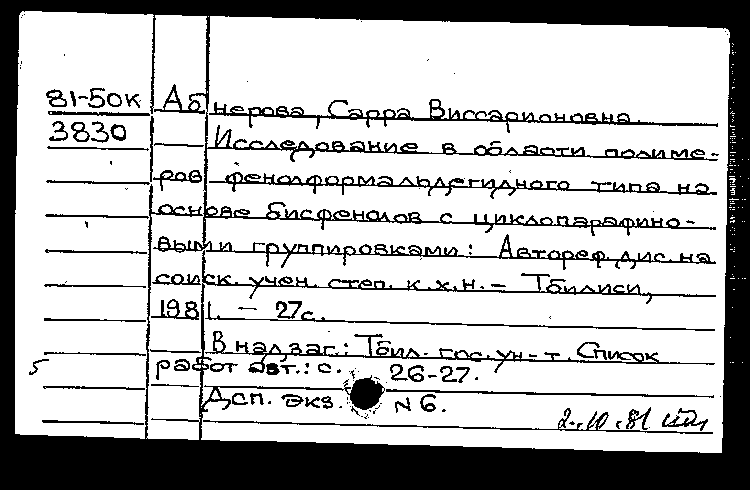 81-50к Абнерова, Сарра Виссарионовна.
3830 Исследование в области полиме-
ров фенолформальдегидного типа на
основе бисфенолов с циклопарафино-
выми группировками: Автореф. дис. на
соиск. учен. степ. к.х.н. – Тбилиси,
1981. – 27с.
В надзаг.: Тбил. гос. ун-т. Список
работ авт.: с. 26-27.
Дсп. экз. N 6.
5
2.10.81